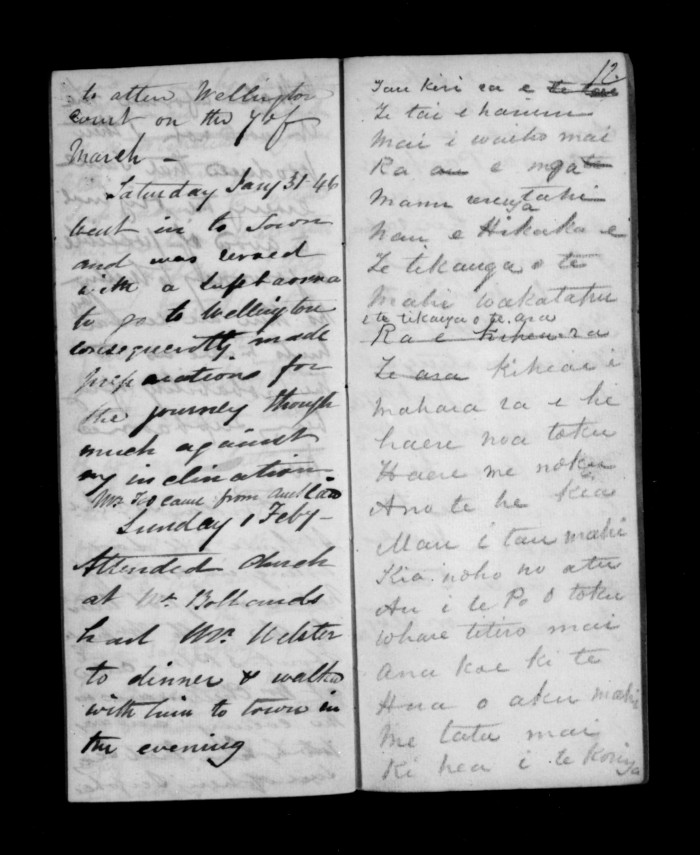 to atten Wellington
court on the 7 of
March —
Saturday Jany 31 46
went in to Town
and was served
with a
to go to Wellington
consequently made
preparations for
the journey though
much against
my inclination
Mr came from
Sunday 1 Feby —
Attended Church
at Mr Bolland's
had Mr Webster
to dinner & walked
with him to town in
the evening
12.
Tau kiri ra e te tai
Te tai e
Mai i waiho mai
Ra au e nga te
Manu
hau e Hikaika e
Te tikanga o te
Mahi wakatatu
e te tikanga o te ara
Ra e ra
Te ara kiheai i
mahara ra e he
haere noa toku
Haere me noku
Ano te he kia
Mau i tau mahi
Kia noho no atu
Au i te Po O toku
Whare titiro mai
ana koe ki te
Hua o aku mahi
Me tatu mai
Ki hea i te